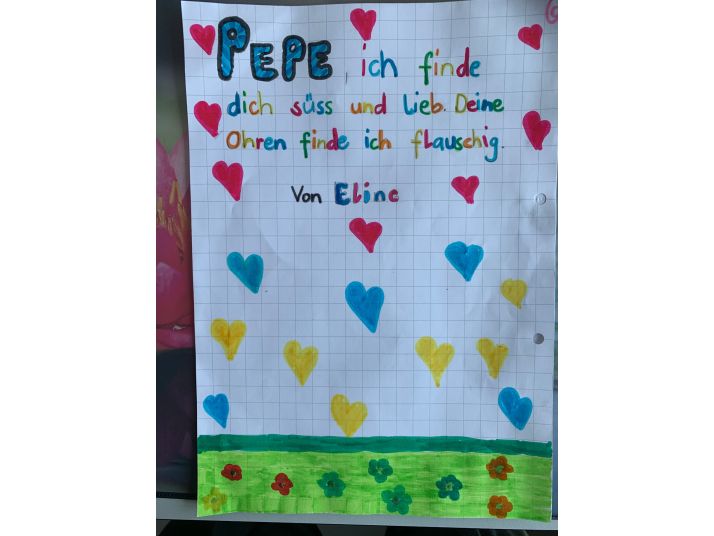 PEPE ich finde
dich süss und lieb. Deine
Ohren finde ich flauschig.
Von Eline